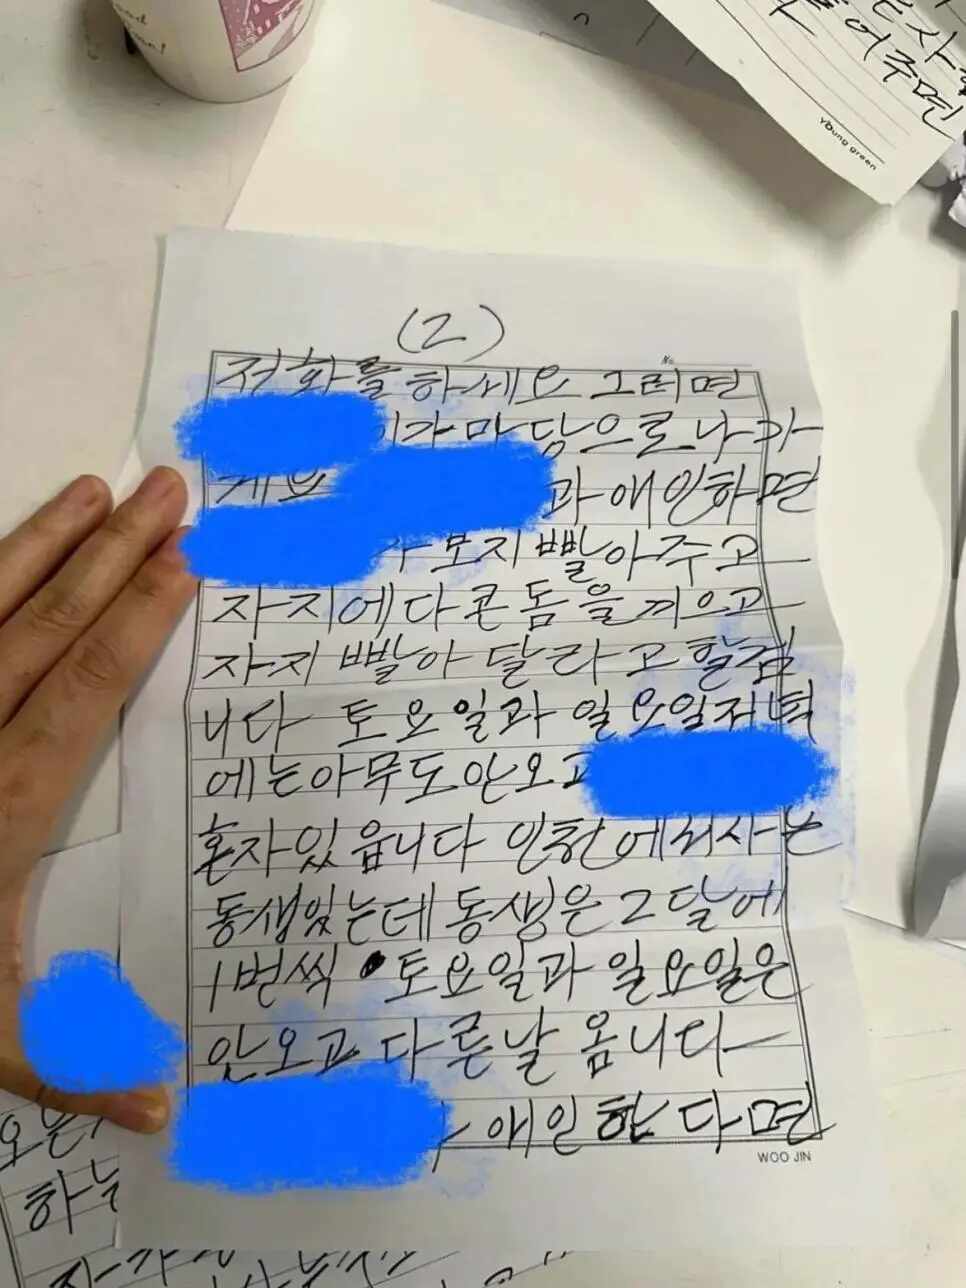 (2)
전화를 하세요 그러면
이가 마당으로 나가
과 애인하면
가 보지 빨아 주고
자지에다 콘돔을 끼으고
자지 빨아 달라고 할겁
니다 토요일과 일요일저녁
에는 아무도 안오고
혼자있읍니다 인천에서 사는
동생있는데 동생은 2달에
1번씩 토요일과 일요일은
안오고 다른날 옵니다
애인한다면
WOO JIN
young green